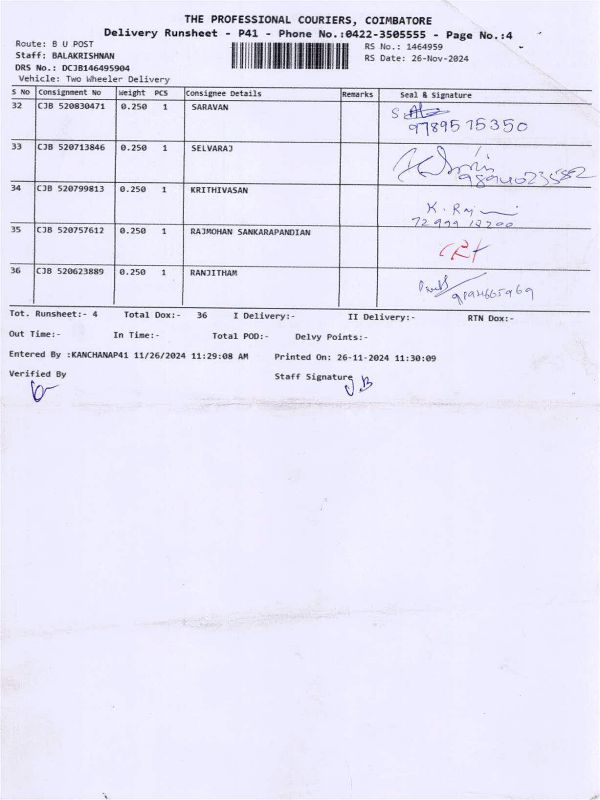 THE PROFESSIONAL COURIERS, COIMBATORE
Delivery Runsheet - P41 - Phone No.:0422-3505555 - Page No.:4
Route: B U POST
RS No.: 1464959
Staff: BALAKRISHNAN
RS Date: 26-Nov-2024
DRS No.: DCJB146495904
Vehicle: Two Wheeler Delivery
S No Consignment No Weight PCS Consignee Details Remarks Seal & Signature
32 CJB 520830471 0.250 1 SARAVAN
9789515350
33 CJB 520713846 0.250 1 SELVARAJ
34 CJB 520799813 0.250 1 KRITHIVASAN
K. Raj
35 CJB 520757612 0.250 1 RAJMOHAN SANKARAPANDIAN
36 CJB 520623889 0.250 1 RANJITHAM
Tot. Runsheet:- 4 Total Dox:- 36 I Delivery:- II Delivery:- RTN Dox:-
Out Time:- In Time:- Total POD:- Delvy Points:-
Entered By :KANCHANAP41 11/26/2024 11:29:08 AM Printed On: 26-11-2024 11:30:09
Verified By Staff Signature